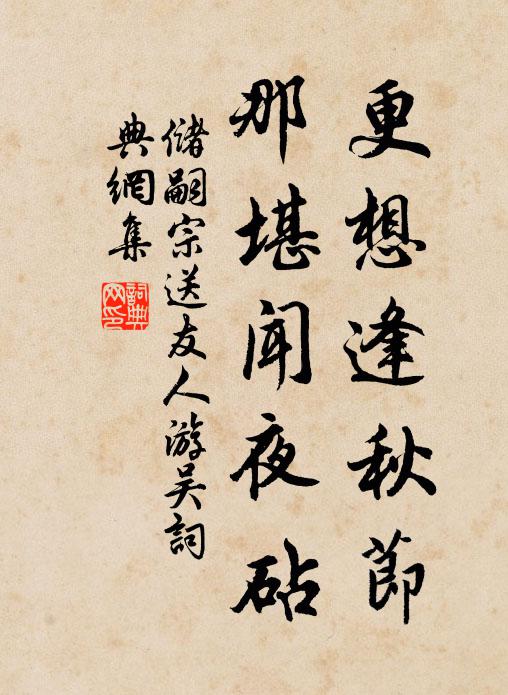 更想逢秋節
那堪聞夜砧
儲嗣宗送友人游吴詞
典網集
詞典
网印